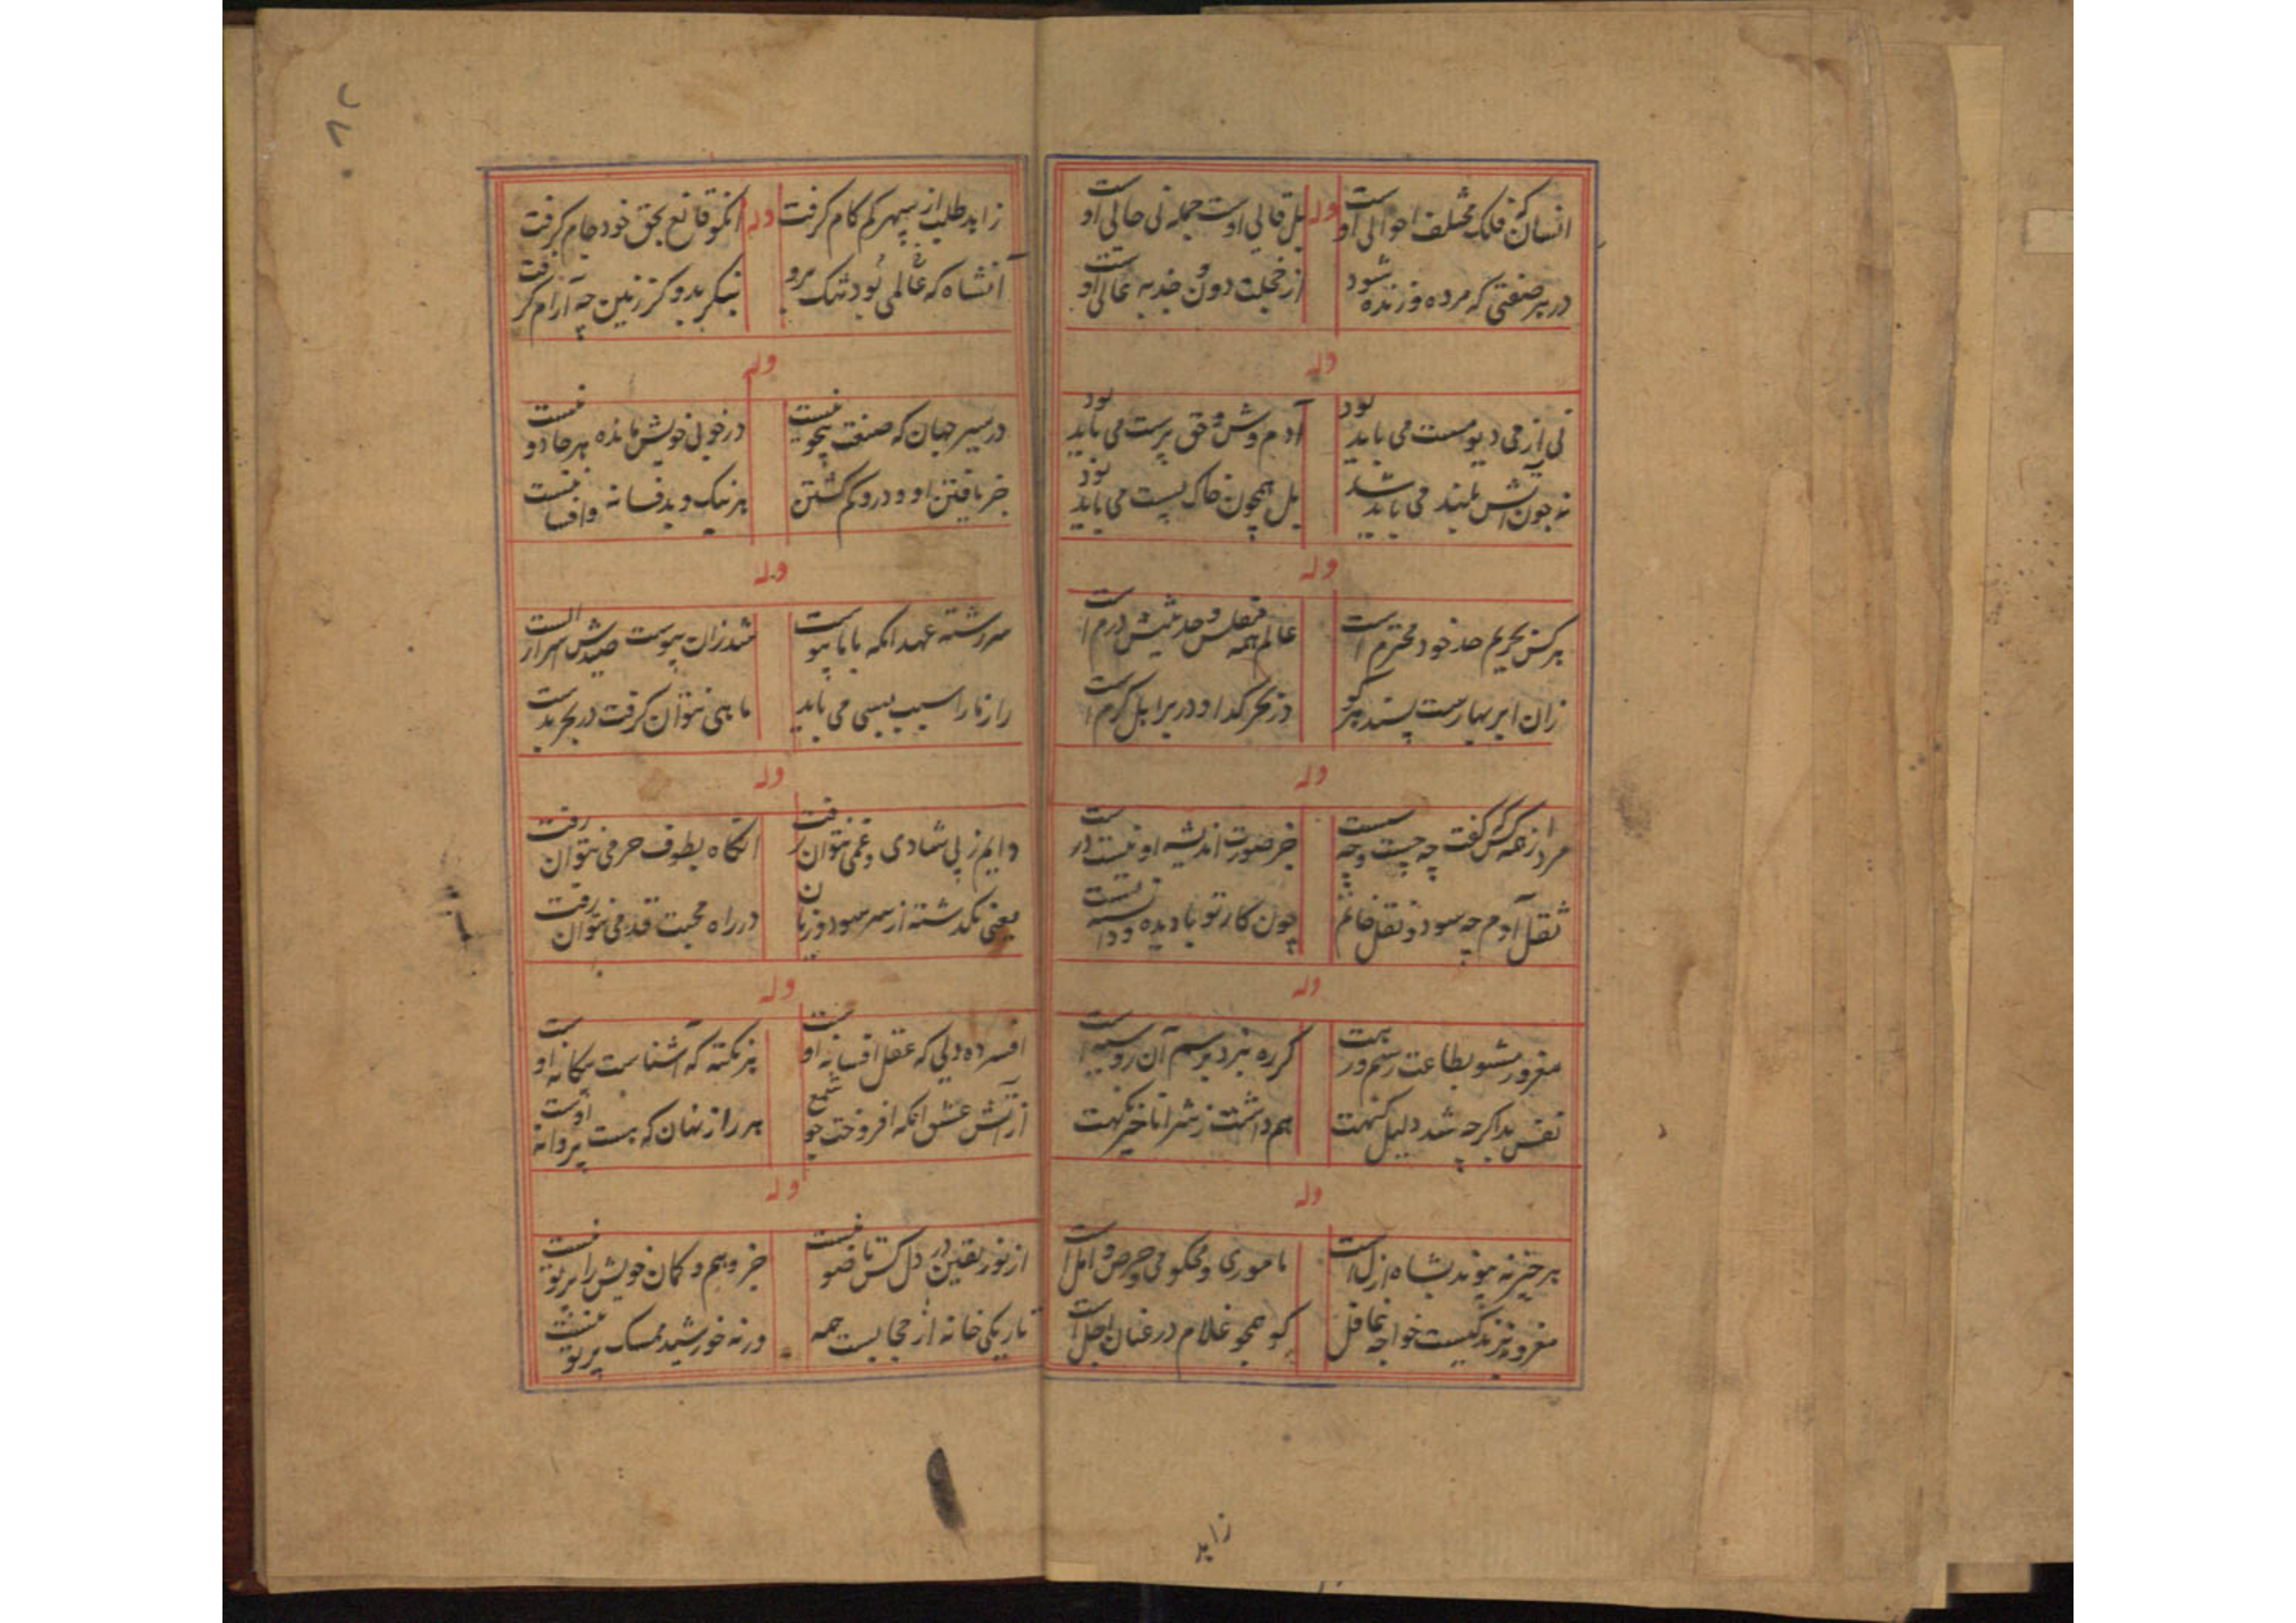 انسان کز فلک مختلف احوالی اوست وله بل قالی اوست جمله نی حالی اوست
در هر صنعتی که مرده و زنده شود از خجلت دون و جذبه عالی اوست
وله
نی از می دیو مست می باید بود آدم وش و حق پرست می باید بود
نه چون آتش بلند می باید شد بل همچون خاک پست می باید بود
وله
هر کس بحریم حد خود محترم است عالم همه مفلس و حدیثش درم است
زان ابر بهارست پسند هر کو در بحر گدا و در بر اهل کرم است
وله
مرد از همه کس گفت چه چست و چه سست جز صورت اندیشه او نیست درست
ثقل آدم چه سود و نقل خاتم چون کار تو با دیده و دانسته تست
وله
مغرور مشو بطاعت رسم و رهت گر ره نبرد برسم آن رو سیهست
نفس بد اگرچه شد دلیل گنهت هم داشت ز شر انا خیر نگهت
وله
هر چیز نه پیوند بشاه ازل است ماموری و محکومی و حرص و امل است
مغرور بزندگیست خواجه غافل کو همچو غلام در عنان اجل است
زاید
زاید طلب از سپهر کم کام گرفت وله انکو قانع بحق خود جام گرفت
آنشاه که عالمی بود تنگ برو بنگر بدو گز زمین چه آرام گرفت
وله
در سیر جهان که صنعت نیست در خوبی خویش مانده هر جا دو نیست
جز یافتن او و درو گم گشتن هر نیک و بد فسانه و افسا نیست
وله
سررشته عهد انکه با ما پیوست شد زان پیوست صیدش اسرار الست
راز ما را سبب بسی می باید ماهی نتوان گرفت در بحر بدست
وله
دایم ز پی شادی و غمی نتوان رفت انگاه بطوف حرمی نتوان رفت
یعنی نگذشته از سر سود و زیان در راه محبت قدمی نتوان رفت
وله
افسرده دلی که عقل افسانه اوست هر نکته که آشناست بیگانه اوست
از آتش عشق انکه افروخت چو شمع هر راز نهان که هست پروانه اوست
وله
از نور یقین در دل کس تا ضو نیست جز وهم و گمان خویش را پیرو نیست
تاریکی خانه از حجابست همه ورنه خورشید ممسک پرتو نیست